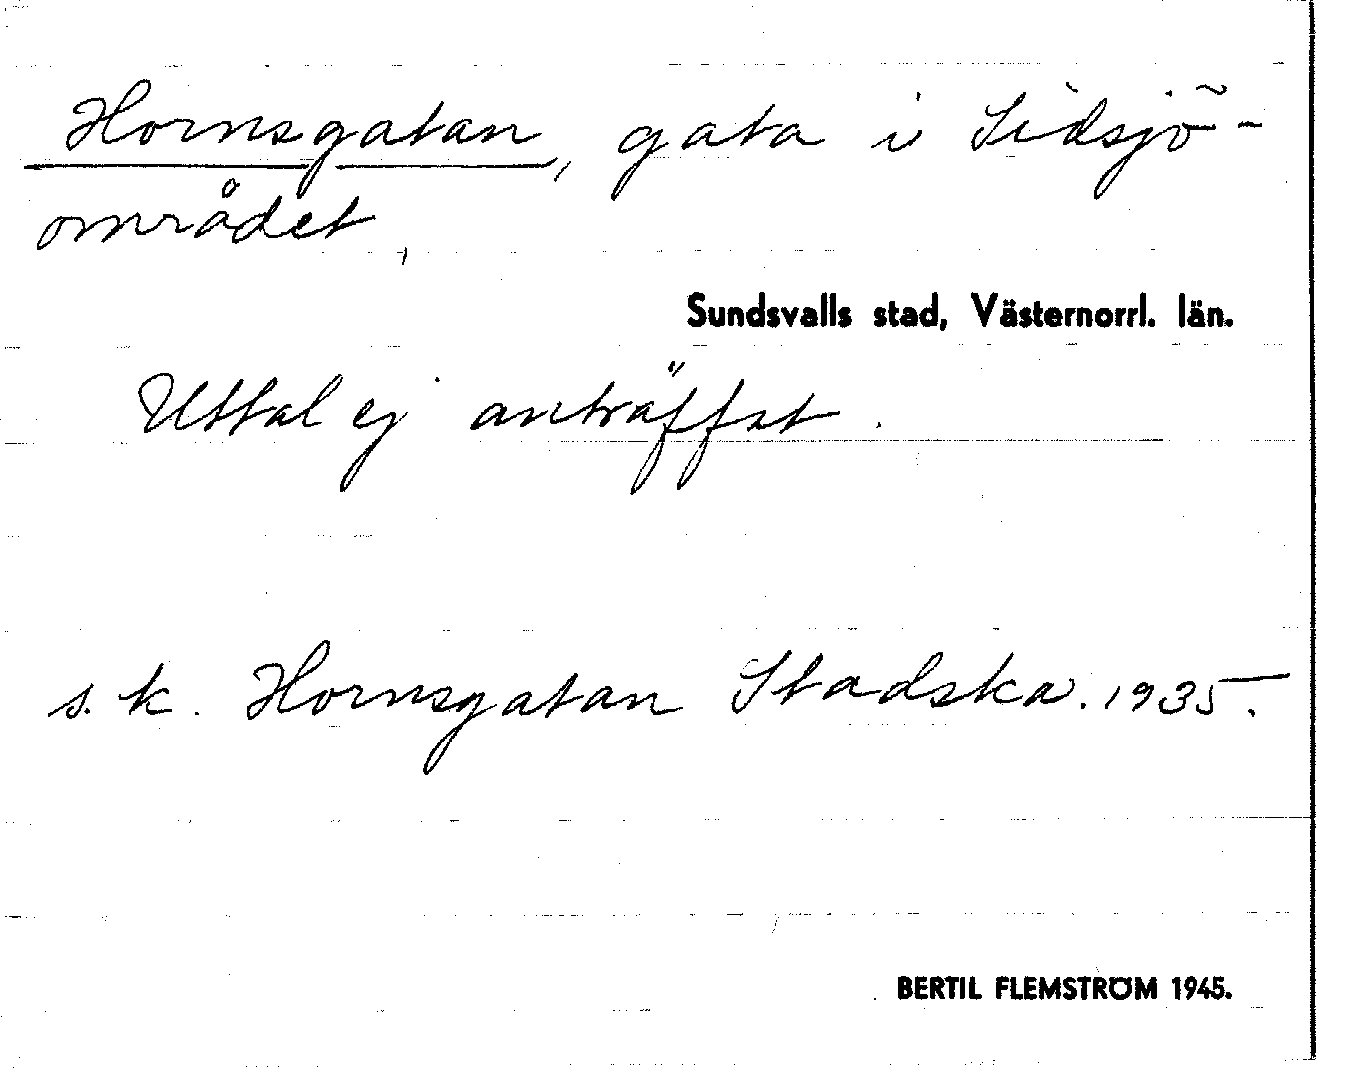 Hornsgatan, gata i Sidsjö-
området,
Sundsvalls stad, Västernorrl. län.
Uttal ej anträffat.
s. k. Hornsgatan Stadska. 1935.
BERTIL FLEMSTRÖM 1945.